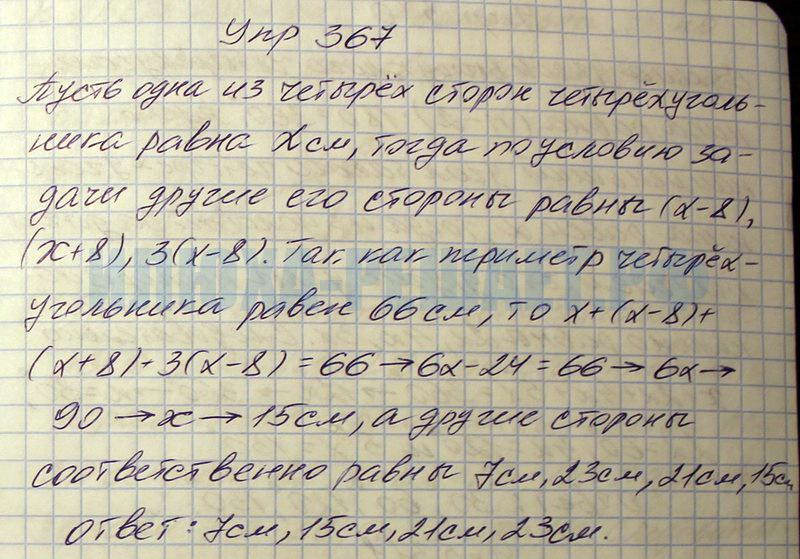 Упр 367
Пусть одна из четырёх сторон четырёхуголь-
ника равна x см, тогда по условию за-
дачи другие его стороны равны (x-8),
(x+8), 3(x-8). Так как периметр четырёх-
угольника равен 66 см, то x+(x-8)+
(x+8)+3(x-8)=66→6x-24=66→6x→
90→x→15см, а другие стороны
соответственно равны 7см, 23см, 21см, 15см
ответ: 7см, 15см, 21см, 23см.